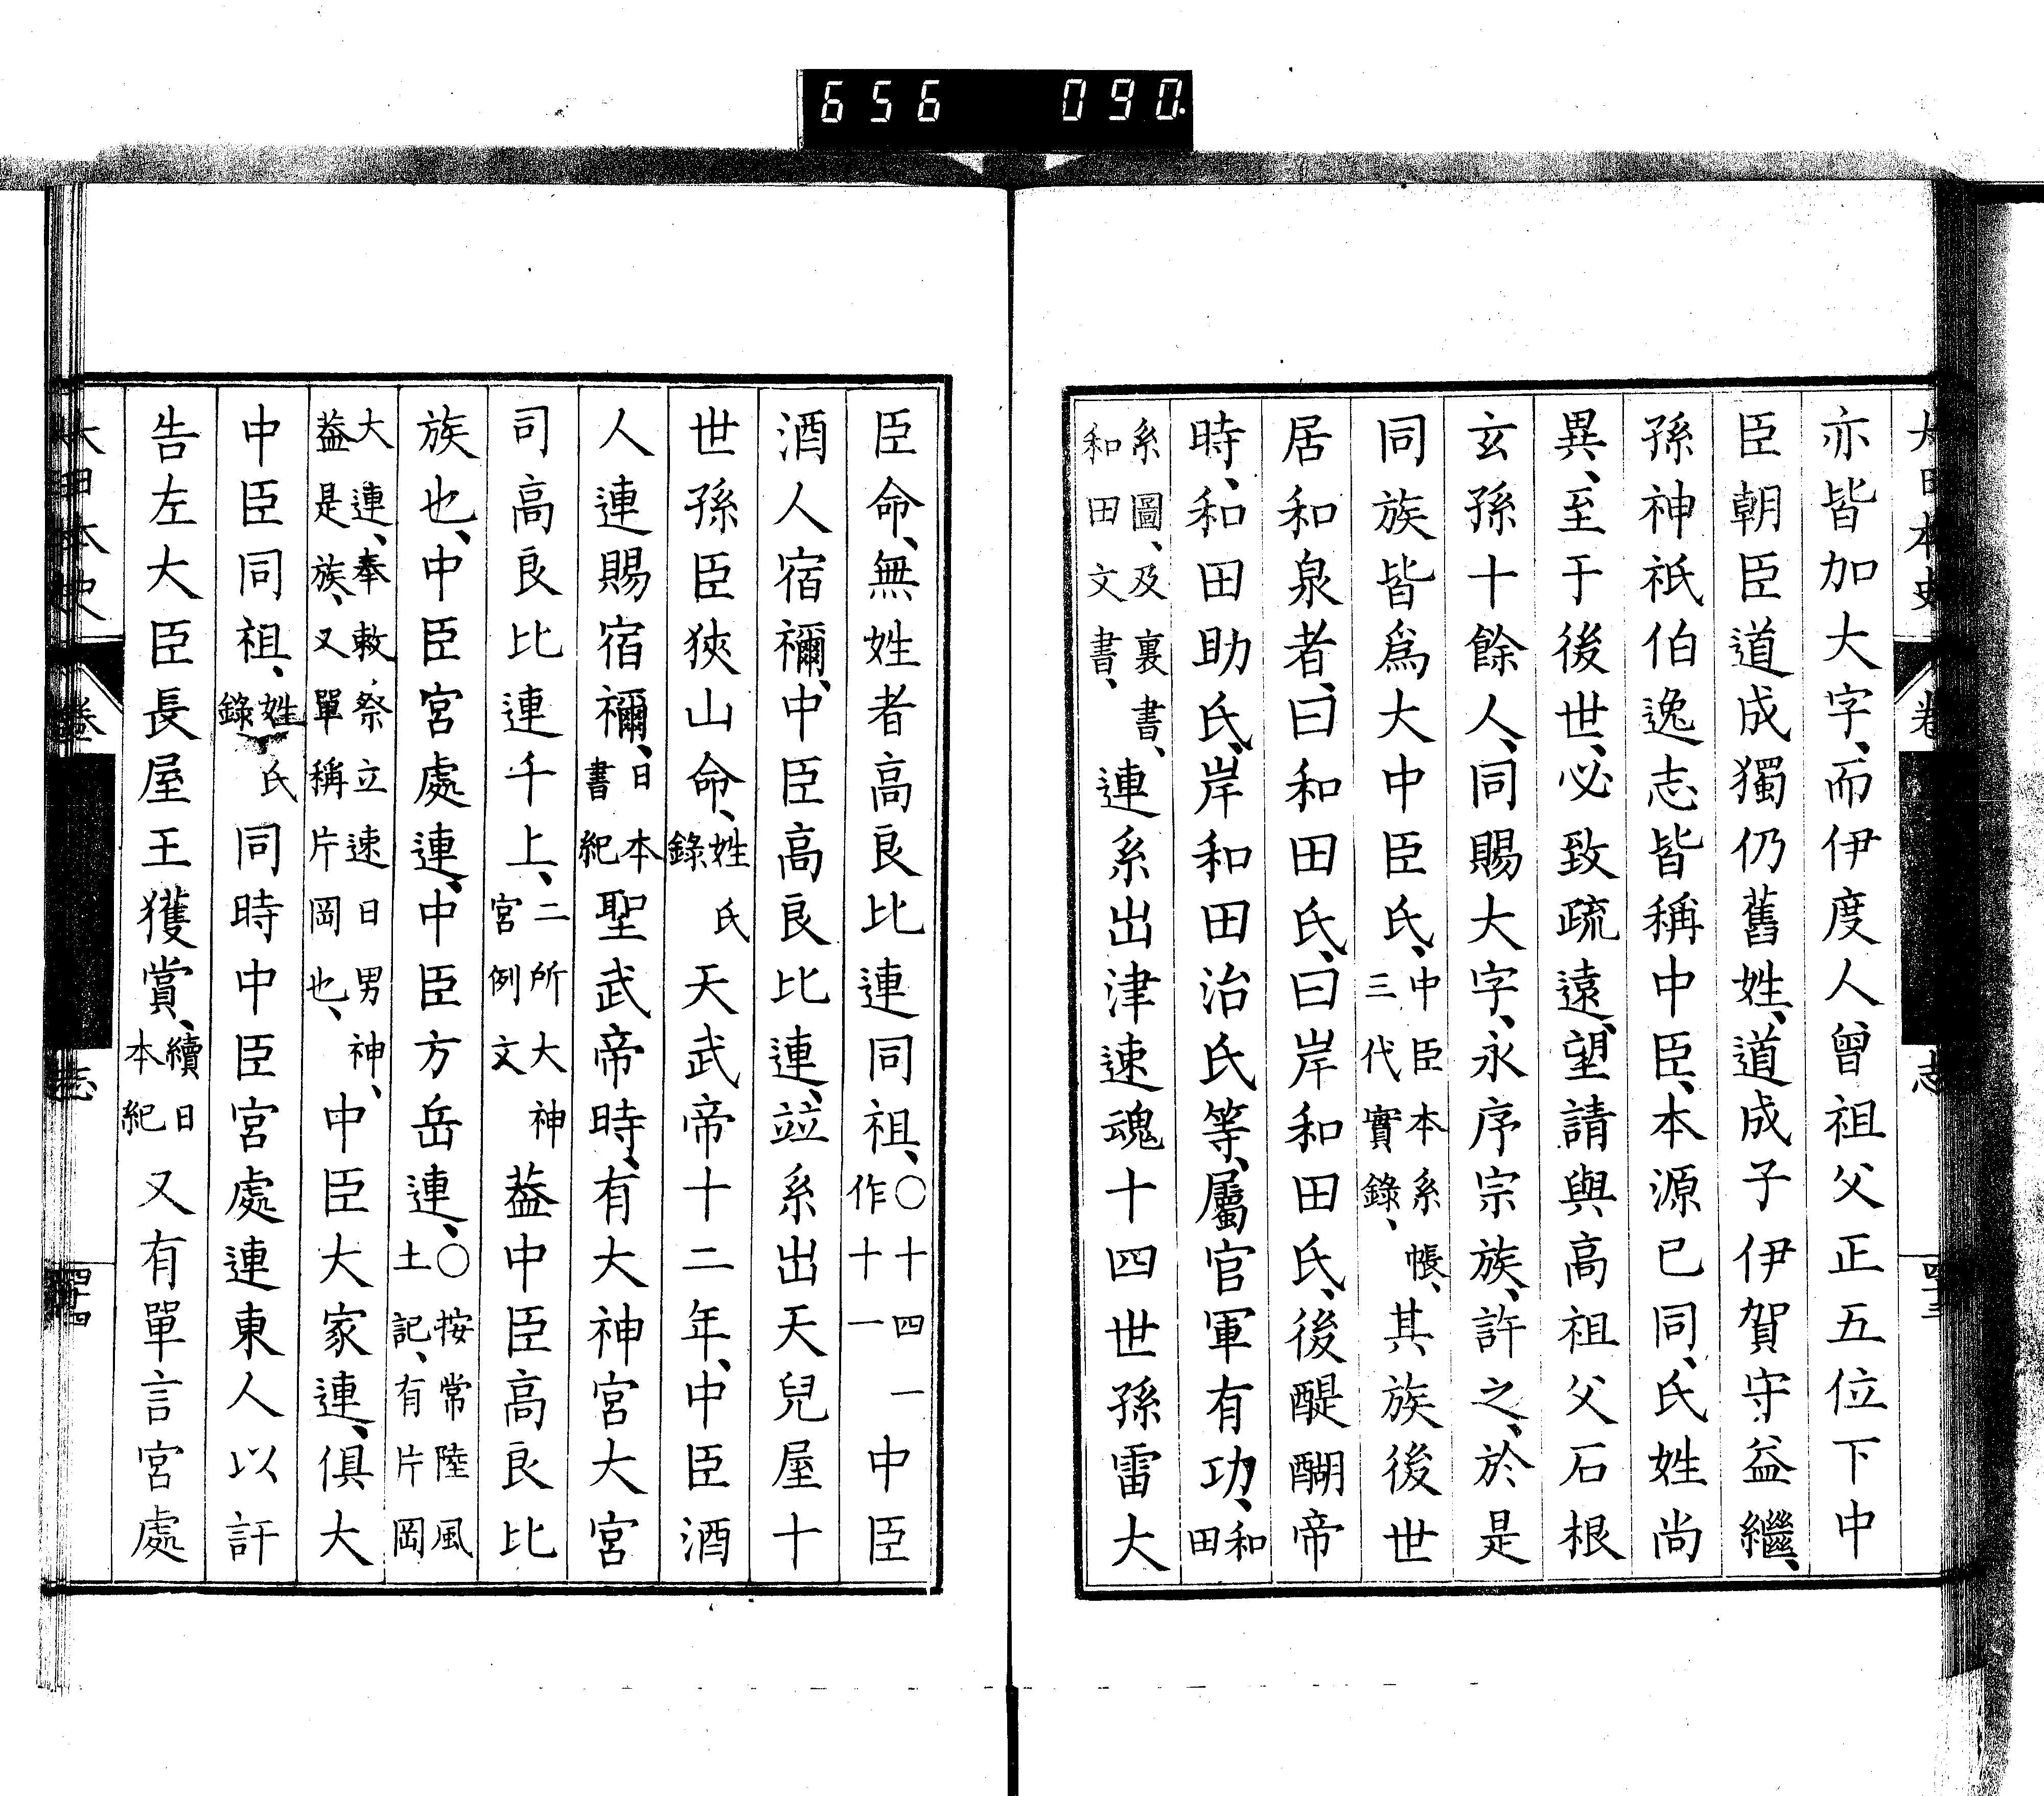 656 090
大日本史 卷 志 四十三
亦皆加大字、而伊度人曾祖父正五位下中
臣朝臣道成獨仍舊姓、道成子伊賀守益繼、
孫神祇伯逸志皆稱中臣、本源已同、氏姓尚
異、至于後世、必致疏遠、望請與高祖父石根
玄孫十餘人、同賜大字、永序宗族、許之、於是
同族皆爲大中臣氏、中臣本系帳、三代實錄、其族後世
居和泉者、曰和田氏、曰岸和田氏、後醍醐帝
時、和田助氏、岸和田治氏等、屬官軍有功、和田
系圖、及裏書、和田文書、連系出津速魂十四世孫雷大
臣命、無姓者高良比連同祖、〇十四一作十一中臣
酒人宿禰、中臣高良比連、竝系出天兒屋十
世孫臣狹山命、姓氏錄天武帝十二年、中臣酒
人連賜宿禰、日本書紀聖武帝時、有大神宮大宮
司高良比連千上、二所大神宮例文葢中臣高良比
族也、中臣宮處連、中臣方岳連、〇按常陸風土記、有片岡
大連、奉敕祭立速日男神、葢是族、又單稱片岡也、中臣大家連、俱大
中臣同祖、姓氏錄同時中臣宮處連東人以訐
告左大臣長屋王獲賞、續日本紀又有單言宮處
大日本史 卷 志 四十四